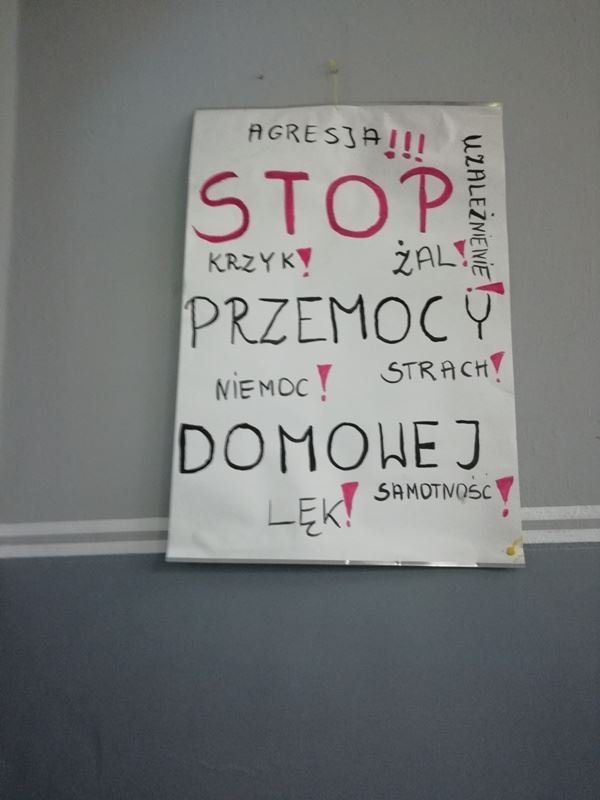 AGRESJA!!!
UZALEŻNIENIE!
STOP
KRZYK!
ŻAL!
PRZEMOCY
NIEMOC!
STRACH!
DOMOWEJ
LĘK!
SAMOTNOŚĆ!